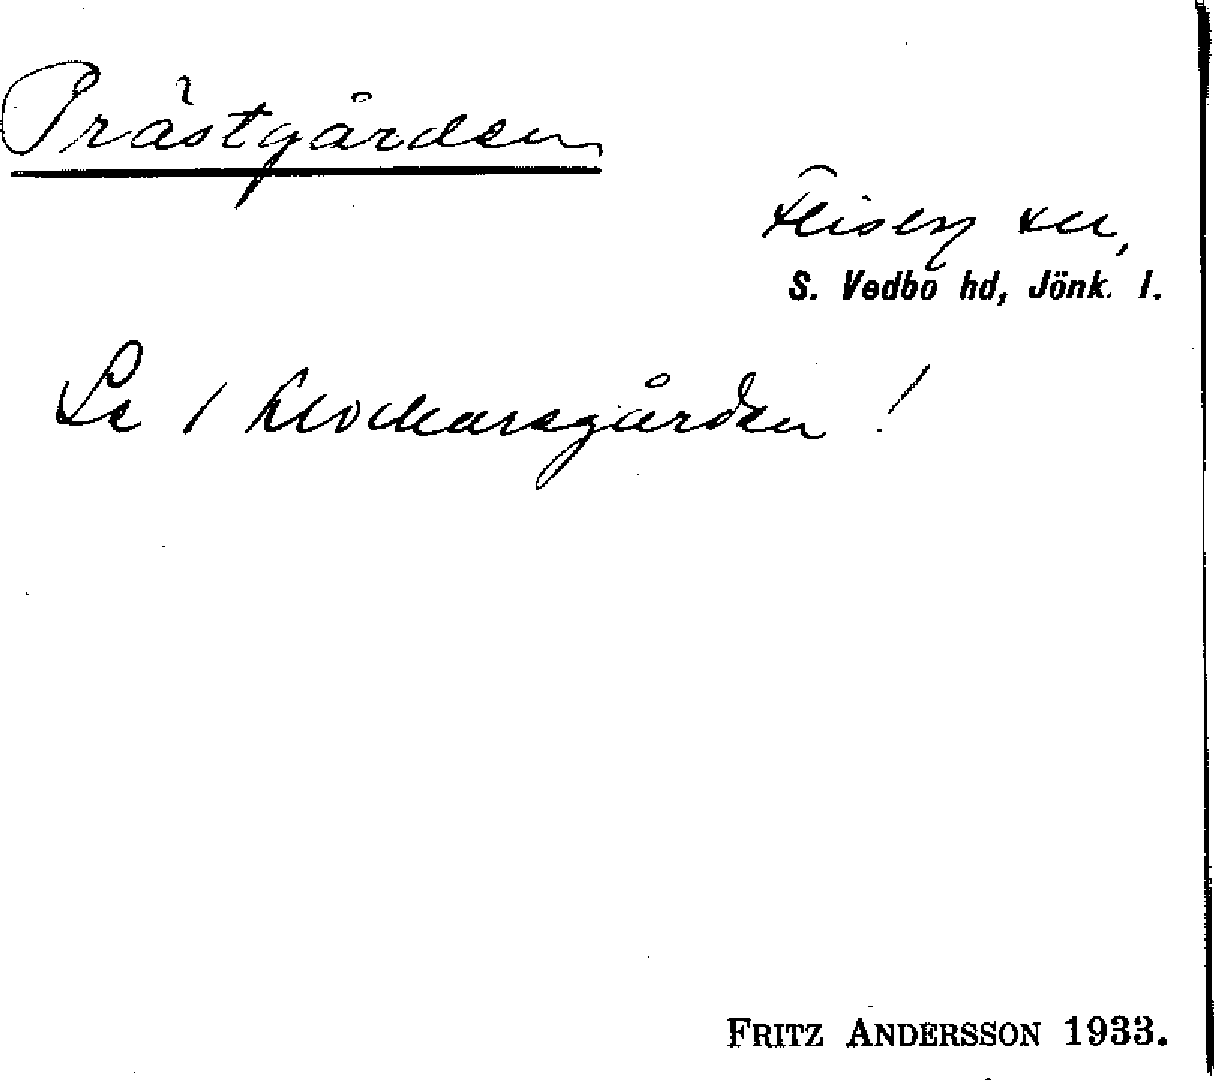 Prästgården
Flisby sn,
S. Vedbo hd, Jönk. l.
Se / Klockaregården !
FRITZ ANDERSSON 1933.